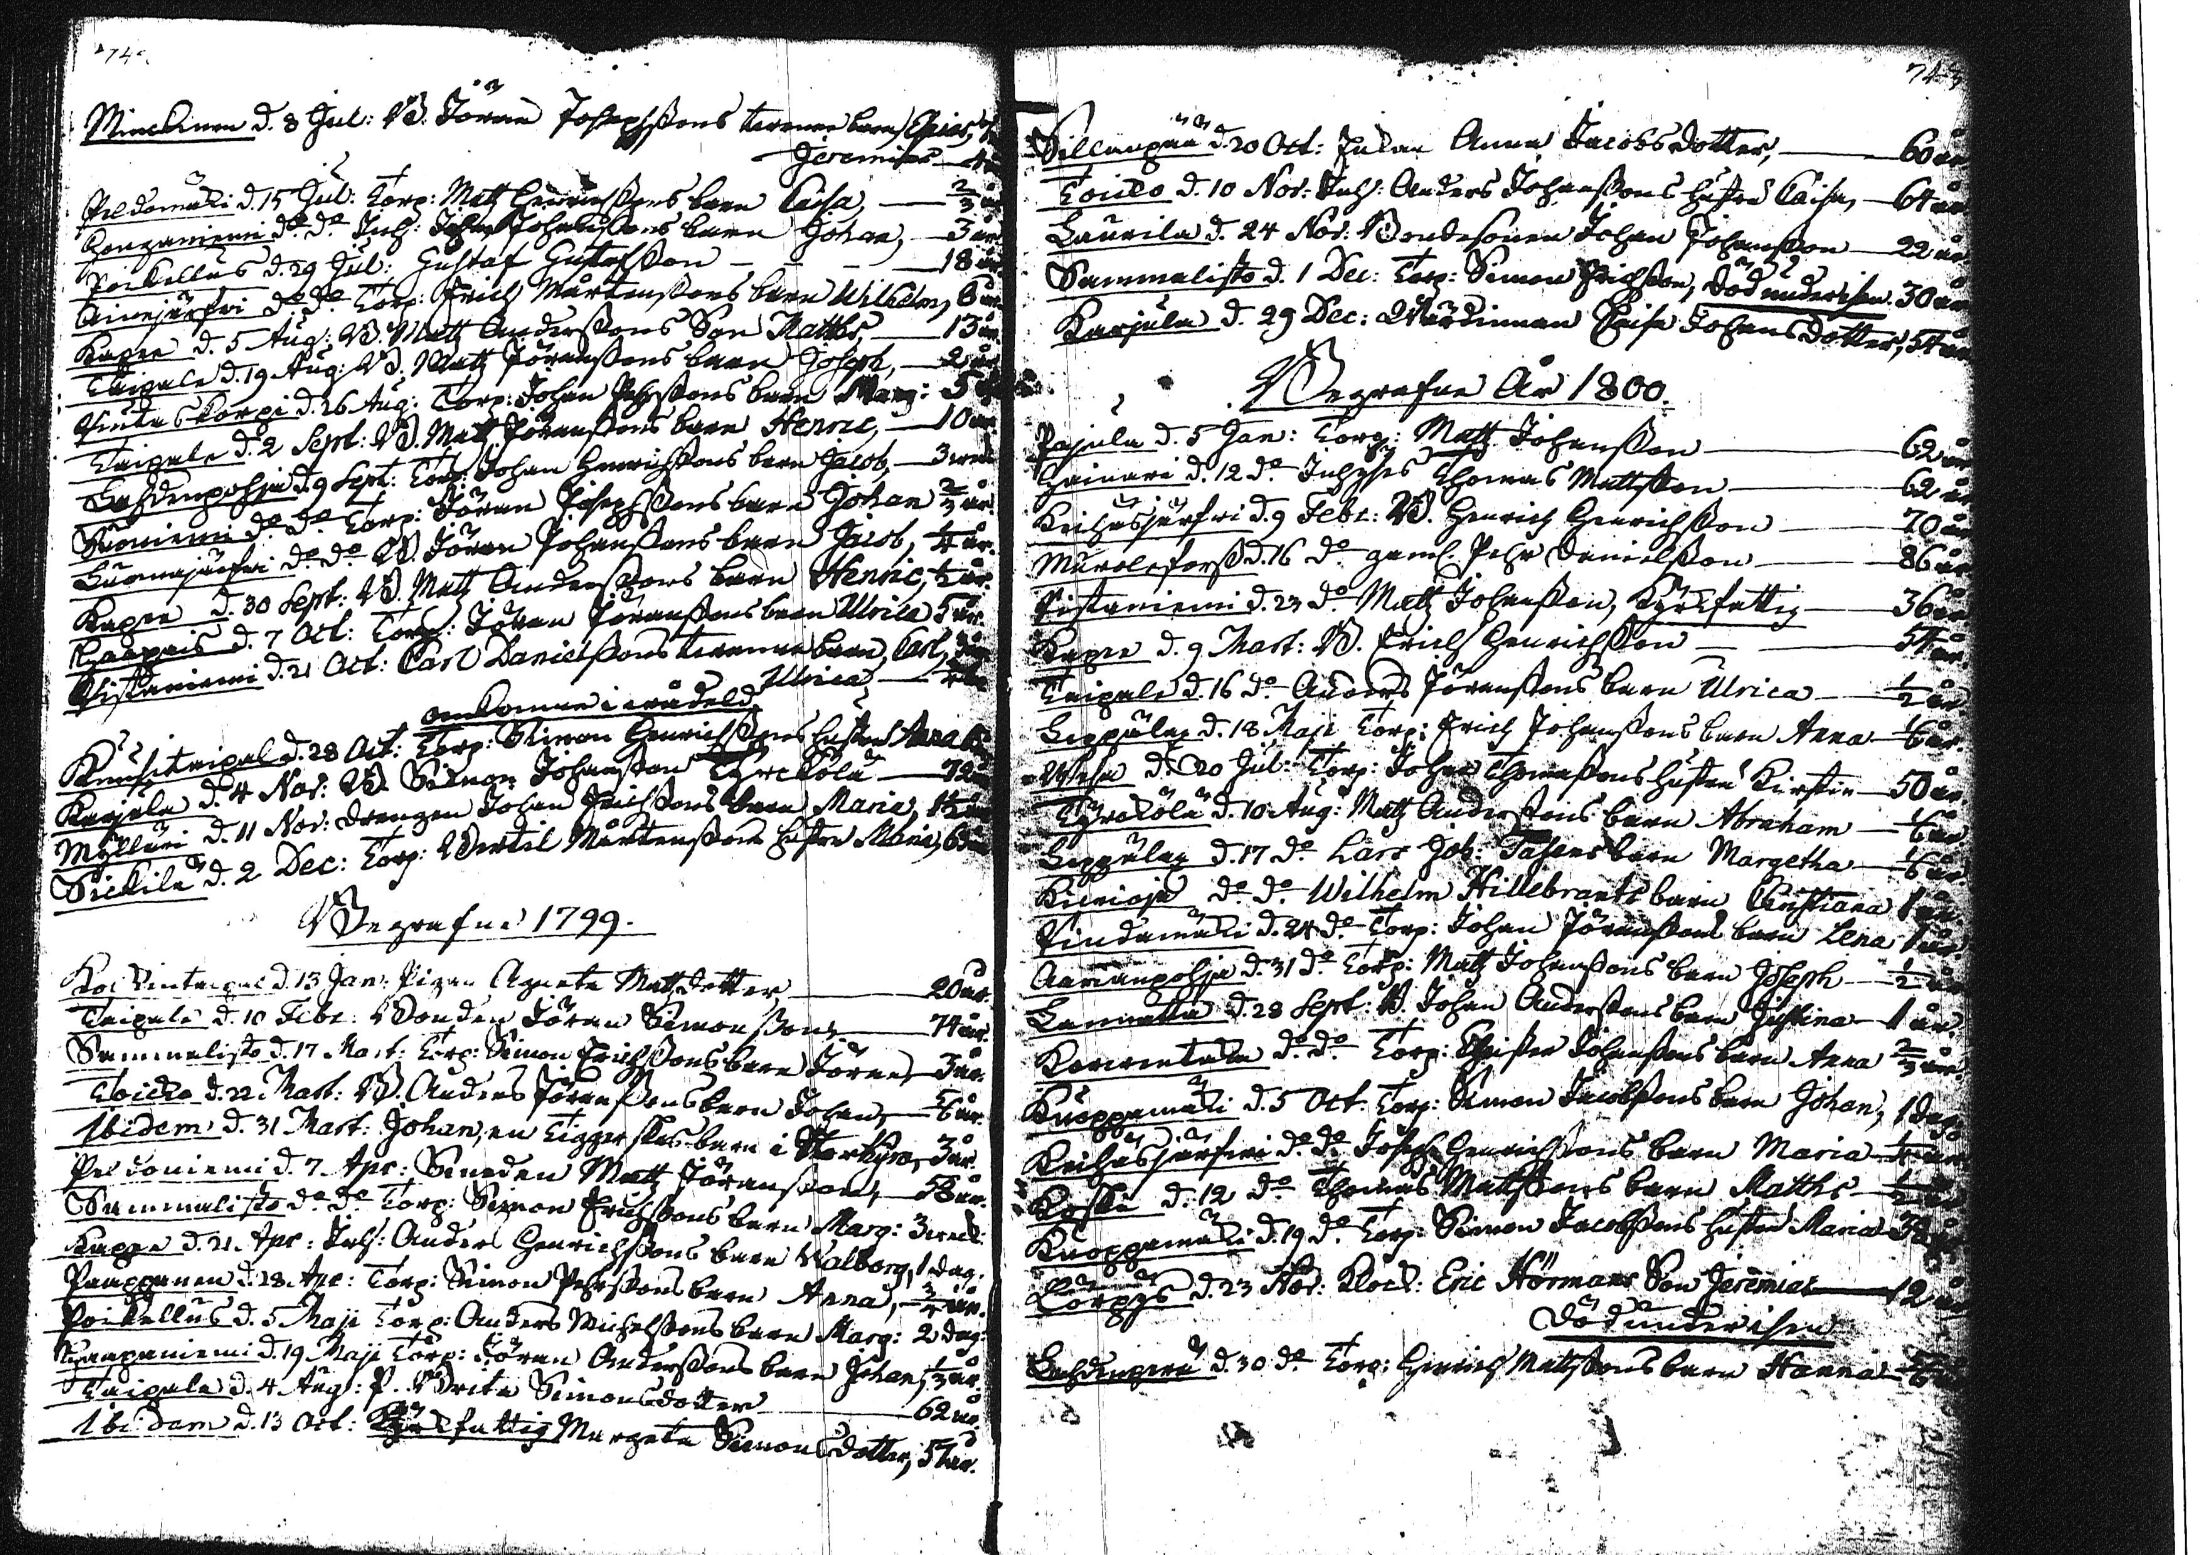 74
Minckinen d. 8 Jul: B. Jöran Josephssons tvenne barn,
Jeremias
Peldomäki d. 15 Jul: Torp: Matts Henrichssons barn Caisa, — 2/3 år
d:o d:o Inh: Johan Johanssons barn Johan, — 3 år
Poikellus d. 29 Jul: Gustaf Gustafsson — 18 år
Ainejärfvi d:o d:o Torp: Erich Mårtenssons barn Wilhelm, 6 år
Kapee d. 5 Aug: B. Matts Anderssons Son Matths, — 13 år
Taipale d. 19 Aug: B. Matts Jöranssons barn Joseph, — 2 år
d. 26 Aug: Torp: Johan Pehrssons barn Marg: 5
Taipale d. 2 Sept: B. Matts Jöranssons barn Henric, — 10 år
Lahdenpohja d. 9 Sept: Torp: Johan Henrichssons barn Jacob, — 3 veck
d:o d:o Torp: Jöran Josephssons barn Johan 2/3 år
d:o d:o B. Jöran Johanssons barn Jacob, 1/4 år.
Kapee d. 30 Sept: B. Matts Anderssons barn Henric, 1/2 år.
d. 7 Oct: Torp: Jöran Jöranssons barn Ulrica 5 år.
d. 21 Oct: Carl Danielssons tvenne barn, Carl,
Ulrica —
omkomne i vådeld
d. 28 Oct: Torp: Simon Henrichssons hustru Anna
Karjula d. 4 Nov: B. Simon Johansson Tyrckölä — 72 år
Mylläri d. 11 Nov: Drengen Johan Erichssons barn Maria, 1 1/2 år
Sickilä d. 2 Dec: Torp: Bertil Mårtenssons hustru Maria, 6
Begrafne 1799.
d. 13 Jan: Pigan Agneta Mattsdotter — 20 år.
Taipale d. 10 Febr: Bonden Jöran Simonsson, — 74 år.
Sammalisto d. 17 Mart: Torp: Simon Erichssons barn Jöran, 3 år.
Toicko d. 22 Mart: B. Anders Jöranssons barn Johan, — 1/6 år.
Ibidem d. 31 Mart: Johan, en Tiggerskas barn i Storkyro, 3 år.
Peldoniemi d. 7 Apr: Smeden Matts Jöransson, — 58 år.
Sammalisto d:o d:o Torp: Simon Erichssons barn Marg: 3 veck:
Kapee d. 21 Apr: Inh: Anders Henrichssons barn Walborg, 1 dag.
Paappanen d. 28 Apr: Torp: Simon Pehrssons barn Anna, — 3/4 år.
Poikellus d. 5 Maji Torp: Anders Michelssons barn Marg: 2 dag:
d. 19 Maji Torp: Jöran Anderssons barn Johan, 1/2 år.
Taipale d. 4 Aug: P. Brita Simonsdotter — 62 år.
Ibidam d. 13 Oct: Kyrkfattig Margeta Simonsdotter, 51 år.
74
Sillanpää d. 20 Oct: Enkan Anna Jacobsdotter, — 60 år
Toicko d. 10 Nov: Inh: Anders Johanssons hustru Caisa, — 64 år
Laurila d. 24 Nov: Bondesonen Johan Johansson — 22 år
Sammalisto d. 1 Dec: Torp: Simon Erichsson, död under isen. 30 år
Karjula d. 29 Dec: Wärdinnan Johansdotter, 54 år
Begrafne År 1800.
Pajula d. 5 Jan: Torp: Matts Johansson — 62 år
Hainari d. 12 d:o Inhyses Thomas Mattsson — 62 år
Keihäsjärfvi d. 9 Febr: B. Henrich Henrichsson — 70 år
Muroleforss d. 16 d:o gaml. Pehr Danielsson — 86 år
d. 23 d:o Matts Johansson, Kyrkfattig — 36 år
Kapee d. 9 Mart: B. Erich Henrichsson — 54 år.
Taipale d. 16 d:o Anders Jöranssons barn Ulrica — 1/2 år.
Leppälax d. 18 Maji Torp: Erich Johanssons barn Anna — 1/6 år.
d. 20 Jul: Torp: Johan Thomassons hustru Kirstin — 50 år.
Tyrckölä d. 10 Aug: Matts Anderssons barn Abraham — 1/6 år
Leppälax d. 17 d:o Lars Joh: barn Margetha — 1/6 år.
d:o d:o Wilhelm Hillebrants barn Christiana 1 år.
d. 24 d:o Torp: Johan Jöranssons barn Lena 1 år.
d. 31 d:o Torp: Matts Johanssons barn Joseph — 1/2 år
d. 28 Sept: B. Johan Anderssons barn Justina — 1 år.
d:o d:o Torp: Christer Johanssons barn Anna 2/3 år.
Kuoppamäki d. 5 Oct. Torp: Simon Jacobssons barn Johan, 1 dag
Keihäsjärfvi d:o d:o Joseph Henrichssons barn Maria —
Koski d. 12 d:o Thomas Mattssons barn Matths — 1/2
Kuoppamäki d. 19 d:o Torp: Simon Jacobssons hustru Maria
d. 23 Nov: Klock: Eric Hörmans Son Jeremias — 12 år
död under isen
Lahdenperä d. 30 d:o Torp: Henrich Mattssons barn Hanna —